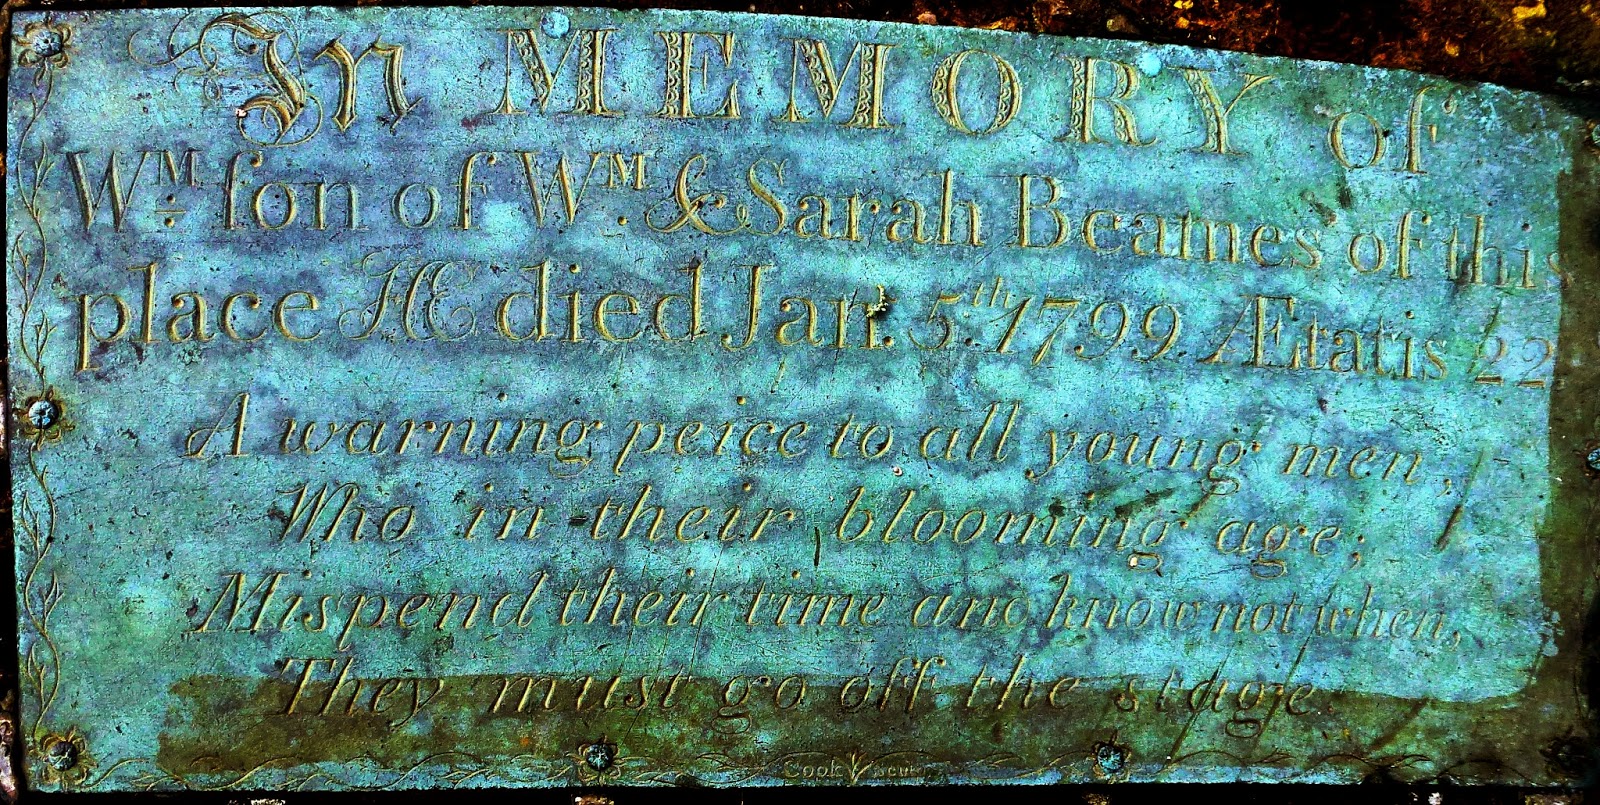 In MEMORY of
Wᴹ. ſon of Wᴹ. & Sarah Beames of this
place HE died Janʸ. 5.ᵗʰ 1799. Ætatis 22
A warning peice to all young men,
Who in their blooming age;
Mispend their time and know not when,
They must go off the stage.
Cook sculp